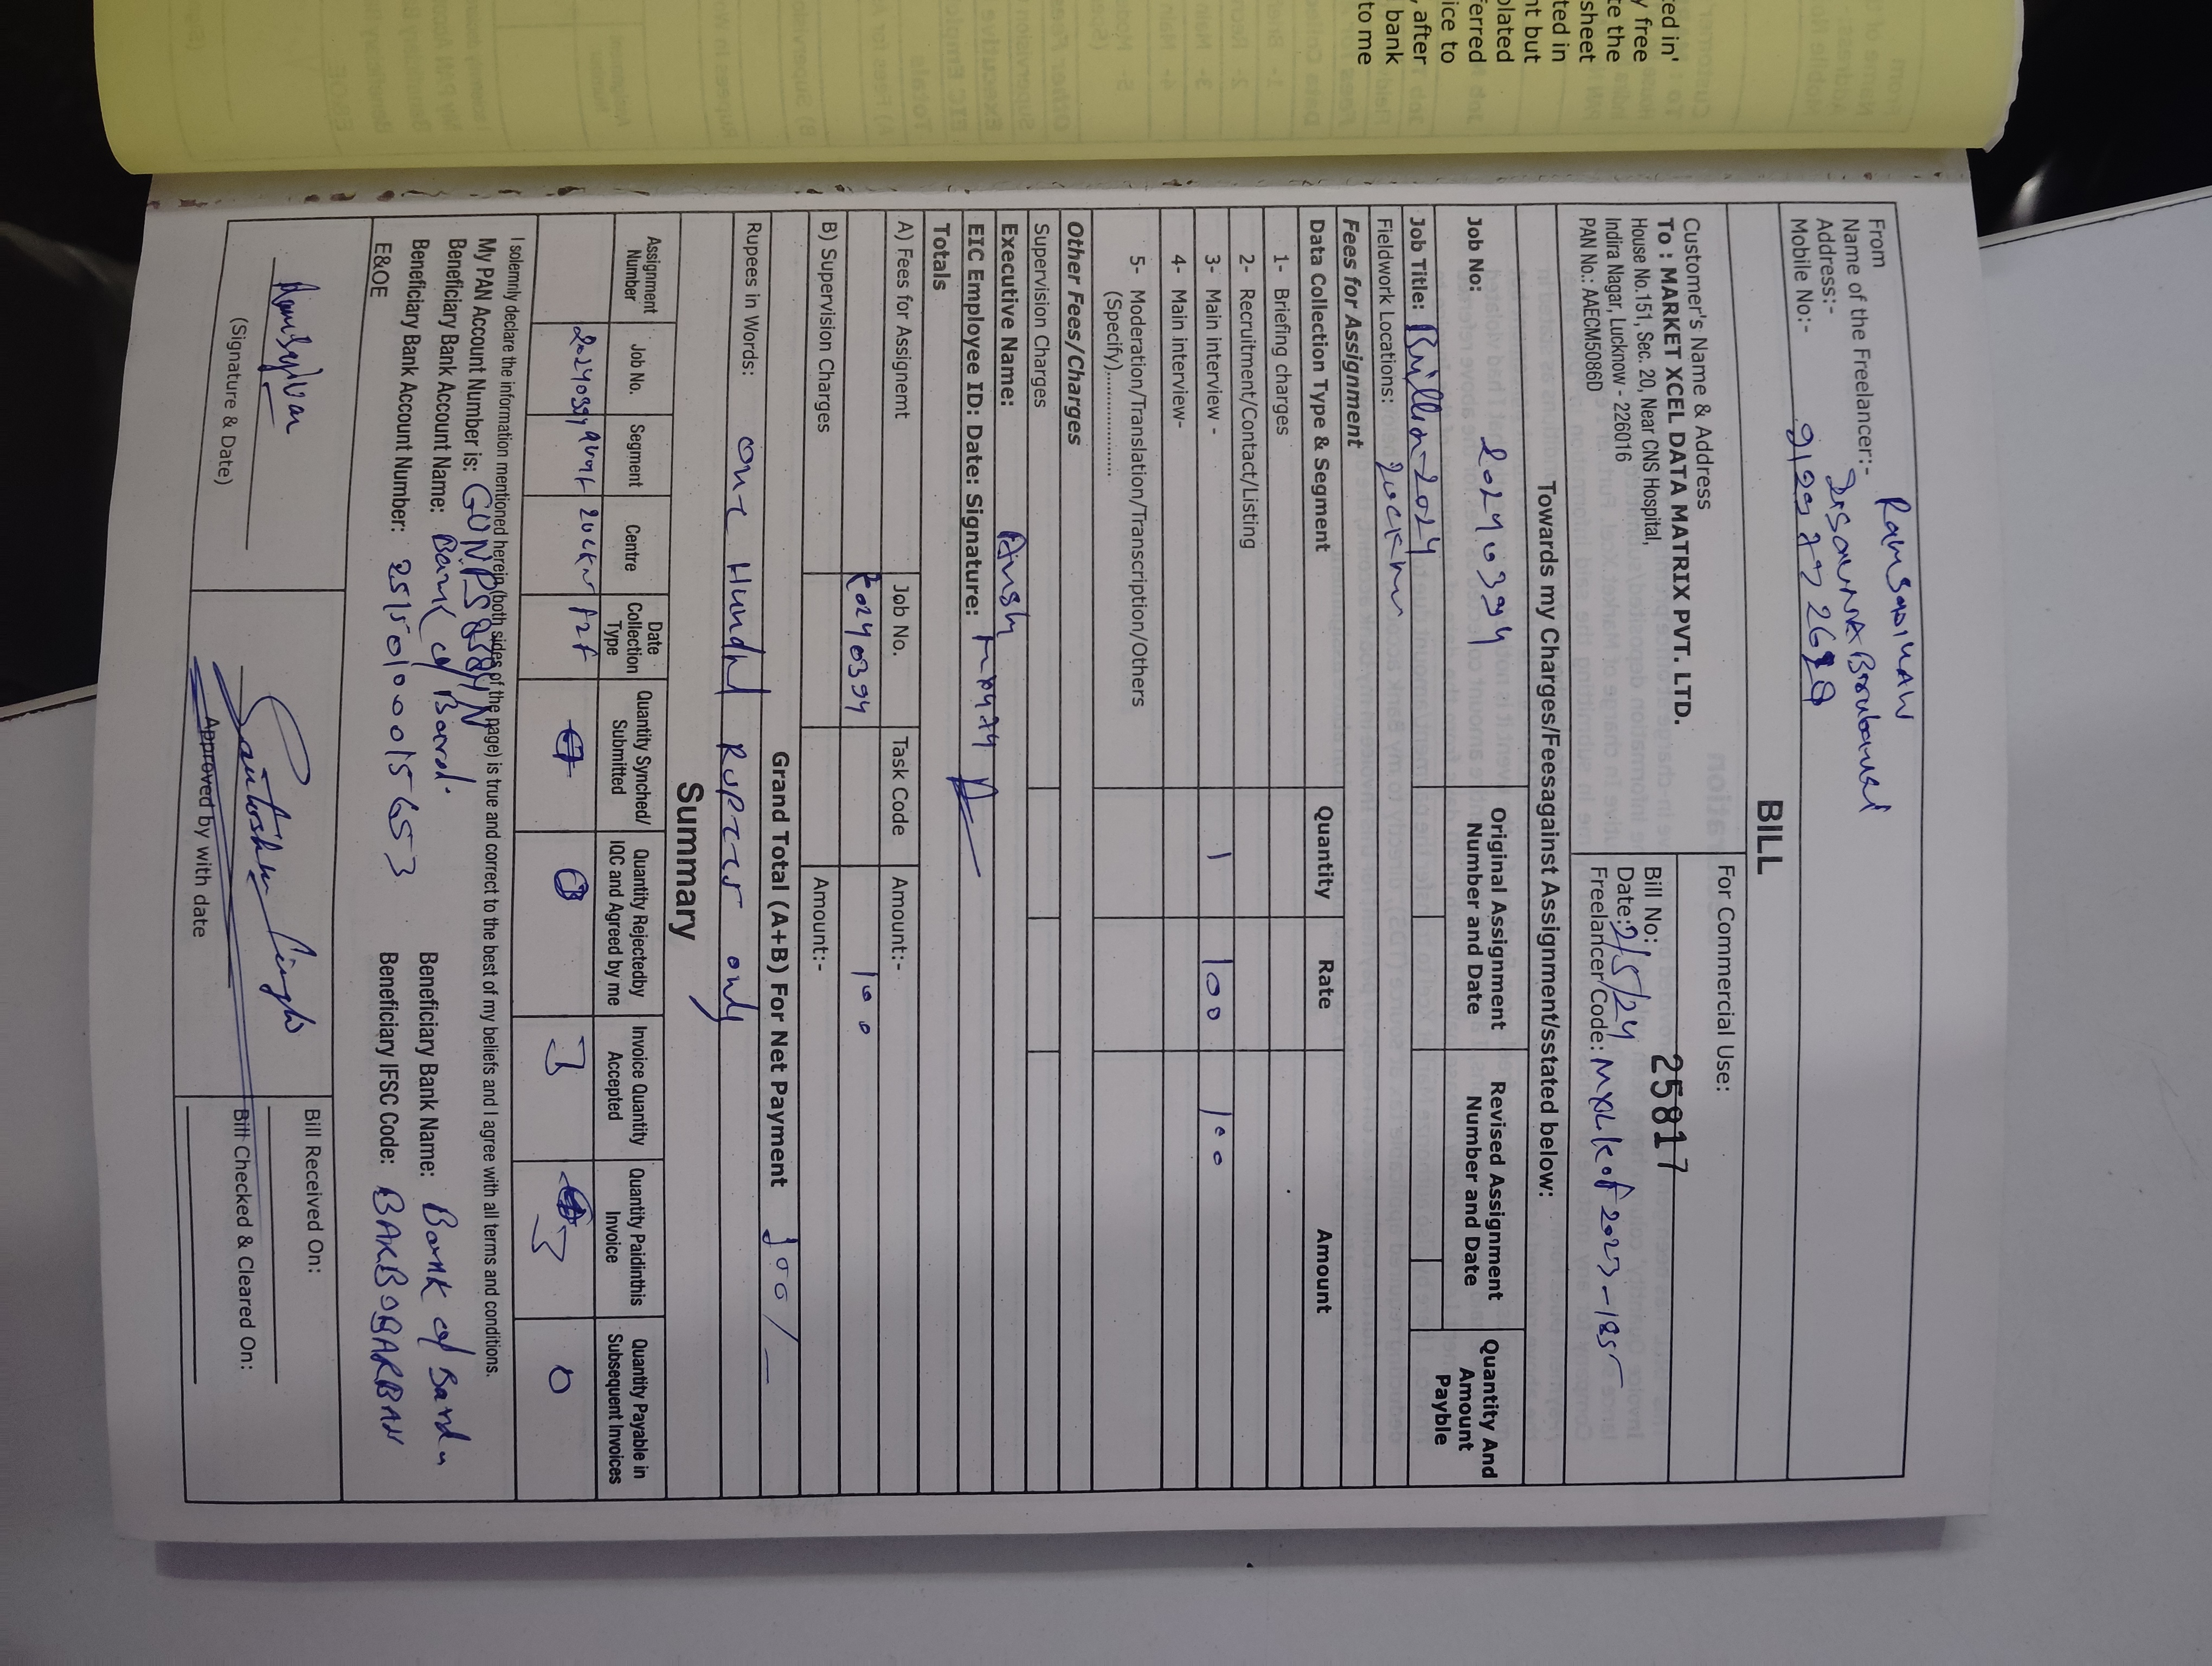 ed in'
y free
te the
sheet
ted in
nt but
olated
ferred
ice to
, after
bank
to me
From
Name of the Freelancer:-
Address:-
Mobile No:-
BILL
Customer's Name & Address
To : MARKET XCEL DATA MATRIX PVT. LTD.
House No.151, Sec. 20, Near CNS Hospital,
Indira Nagar, Lucknow - 226016
PAN No.: AAECM5086D
For Commercial Use:
Bill No: 25817
Date: 2/5/24
Freelancer Code:
Towards my Charges/Feesagainst Assignment/sstated below:
Job No: 20240394
Original Assignment Number and Date
Revised Assignment Number and Date
Quantity And Amount Payble
Job Title: 2024
Fieldwork Locations:
Fees for Assignment
Data Collection Type & Segment Quantity Rate Amount
1- Briefing charges
2- Recruitment/Contact/Listing
3- Main interview - 1 100 100
4- Main interview-
5- Moderation/Translation/Transcription/Others
(Specify)................
Other Fees/Charges
Supervision Charges
Executive Name: Ansh
EIC Employee ID: Date: Signature:
Totals
A) Fees for Assignemt Job No. Task Code Amount:-
20240394 100
B) Supervision Charges Amount:-
Grand Total (A+B) For Net Payment 100/-
Rupees in Words: one Hundred Rupees only
Summary
Assignment Number Job No. Segment Centre Date Collection Type Quantity Synched/ Submitted Quantity Rejectedby IQC and Agreed by me Invoice Quantity Accepted Quantity Paidinthis Invoice Quantity Payable in Subsequent Invoices
20240394 F2F 0 0
I solemnly declare the information mentioned herein (both sides of the page) is true and correct to the best of my beliefs and I agree with all terms and conditions.
My PAN Account Number is:
Beneficiary Bank Account Name: Bank of
Beneficiary Bank Name: Bank of
Beneficiary Bank Account Number:
Beneficiary IFSC Code:
E&OE
(Signature & Date)
Santosh Singh
Approved by with date
Bill Received On:
Bill Checked & Cleared On: